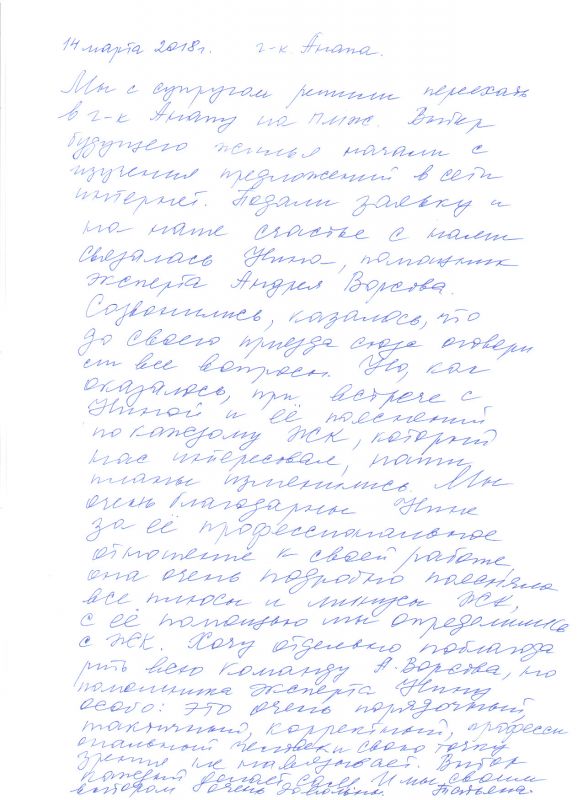 14 марта 2018г. г-к Анапа.
Мы с супругом решили переехать
в г-к Анапу на ПМЖ. Выбор
будущего жилья начали с
изучения предложений в сети
интернет. Подали заявку и
на наше счастье с нами
связалась Нина, помощник
эксперта Андрея Ворсова.
Созвонились, казалось, что
до своего приезда сюда оговори
ли все вопросы. Но, как
оказалось, при встрече с
Ниной и её пояснений
по каждому ЖК, который
нас интересовал, наши
планы изменились. Мы
очень благодарны Нине
за её профессиональное
отношение к своей работе,
она очень подробно поясняла
все плюсы и минусы ЖК,
с её помощью мы определились
с ЖК. Хочу отдельно поблагода
рить всю команду А. Ворсова, но
помощника эксперта Нину
особо: это очень порядочный,
тактичный, корректный, професси
ональный человек и свою точку
зрения не навязывает. Выбор
каждый делает сам. И мы своим
выбором очень довольны. Татьяна.